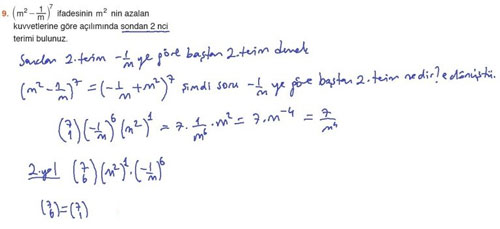 9. (m² - 1/m)⁷ ifadesinin m² nin azalan
kuvvetlerine göre açılımında sondan 2 nci
terimi bulunuz.
Sondan 2.terim -1/m ye göre baştan 2.terim demek
(m² - 1/m)⁷ = (-1/m + m²)⁷ şimdi soru -1/m ye göre baştan 2.terim nedir? e dönüştü.
(7 1) (-1/m)⁶ (m²)¹ = 7 · 1/m⁶ · m² = 7 · m⁻⁴ = 7/m⁴
2.yol (7 6) (m²)¹ · (-1/m)⁶
(7 6) = (7 1)